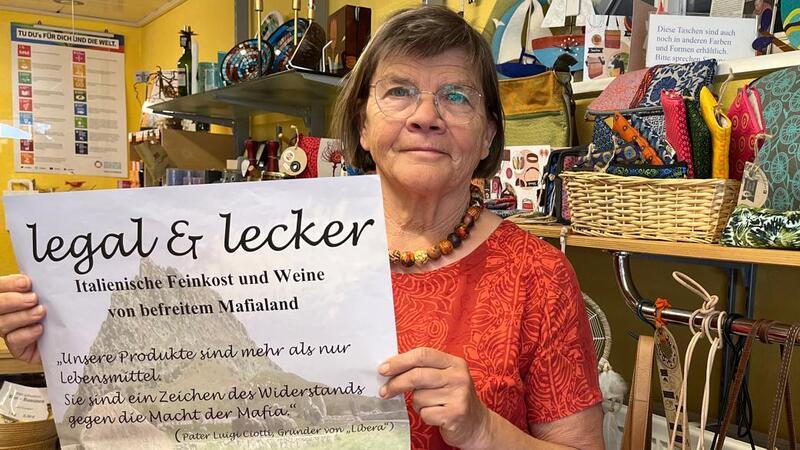 TU DU's FÜR DICH UND DIE WELT.
Diese Taschen sind auch
noch in anderen Farben
und Formen erhältlich.
legal & lecker
Italienische Feinkost und Weine
von befreitem Mafialand
„Unsere Produkte sind mehr als nur
Lebensmittel.
Sie sind ein Zeichen des Widerstands
gegen die Macht der Mafia.“
(Pater Luigi Ciotti, Gründer von „Libera“)